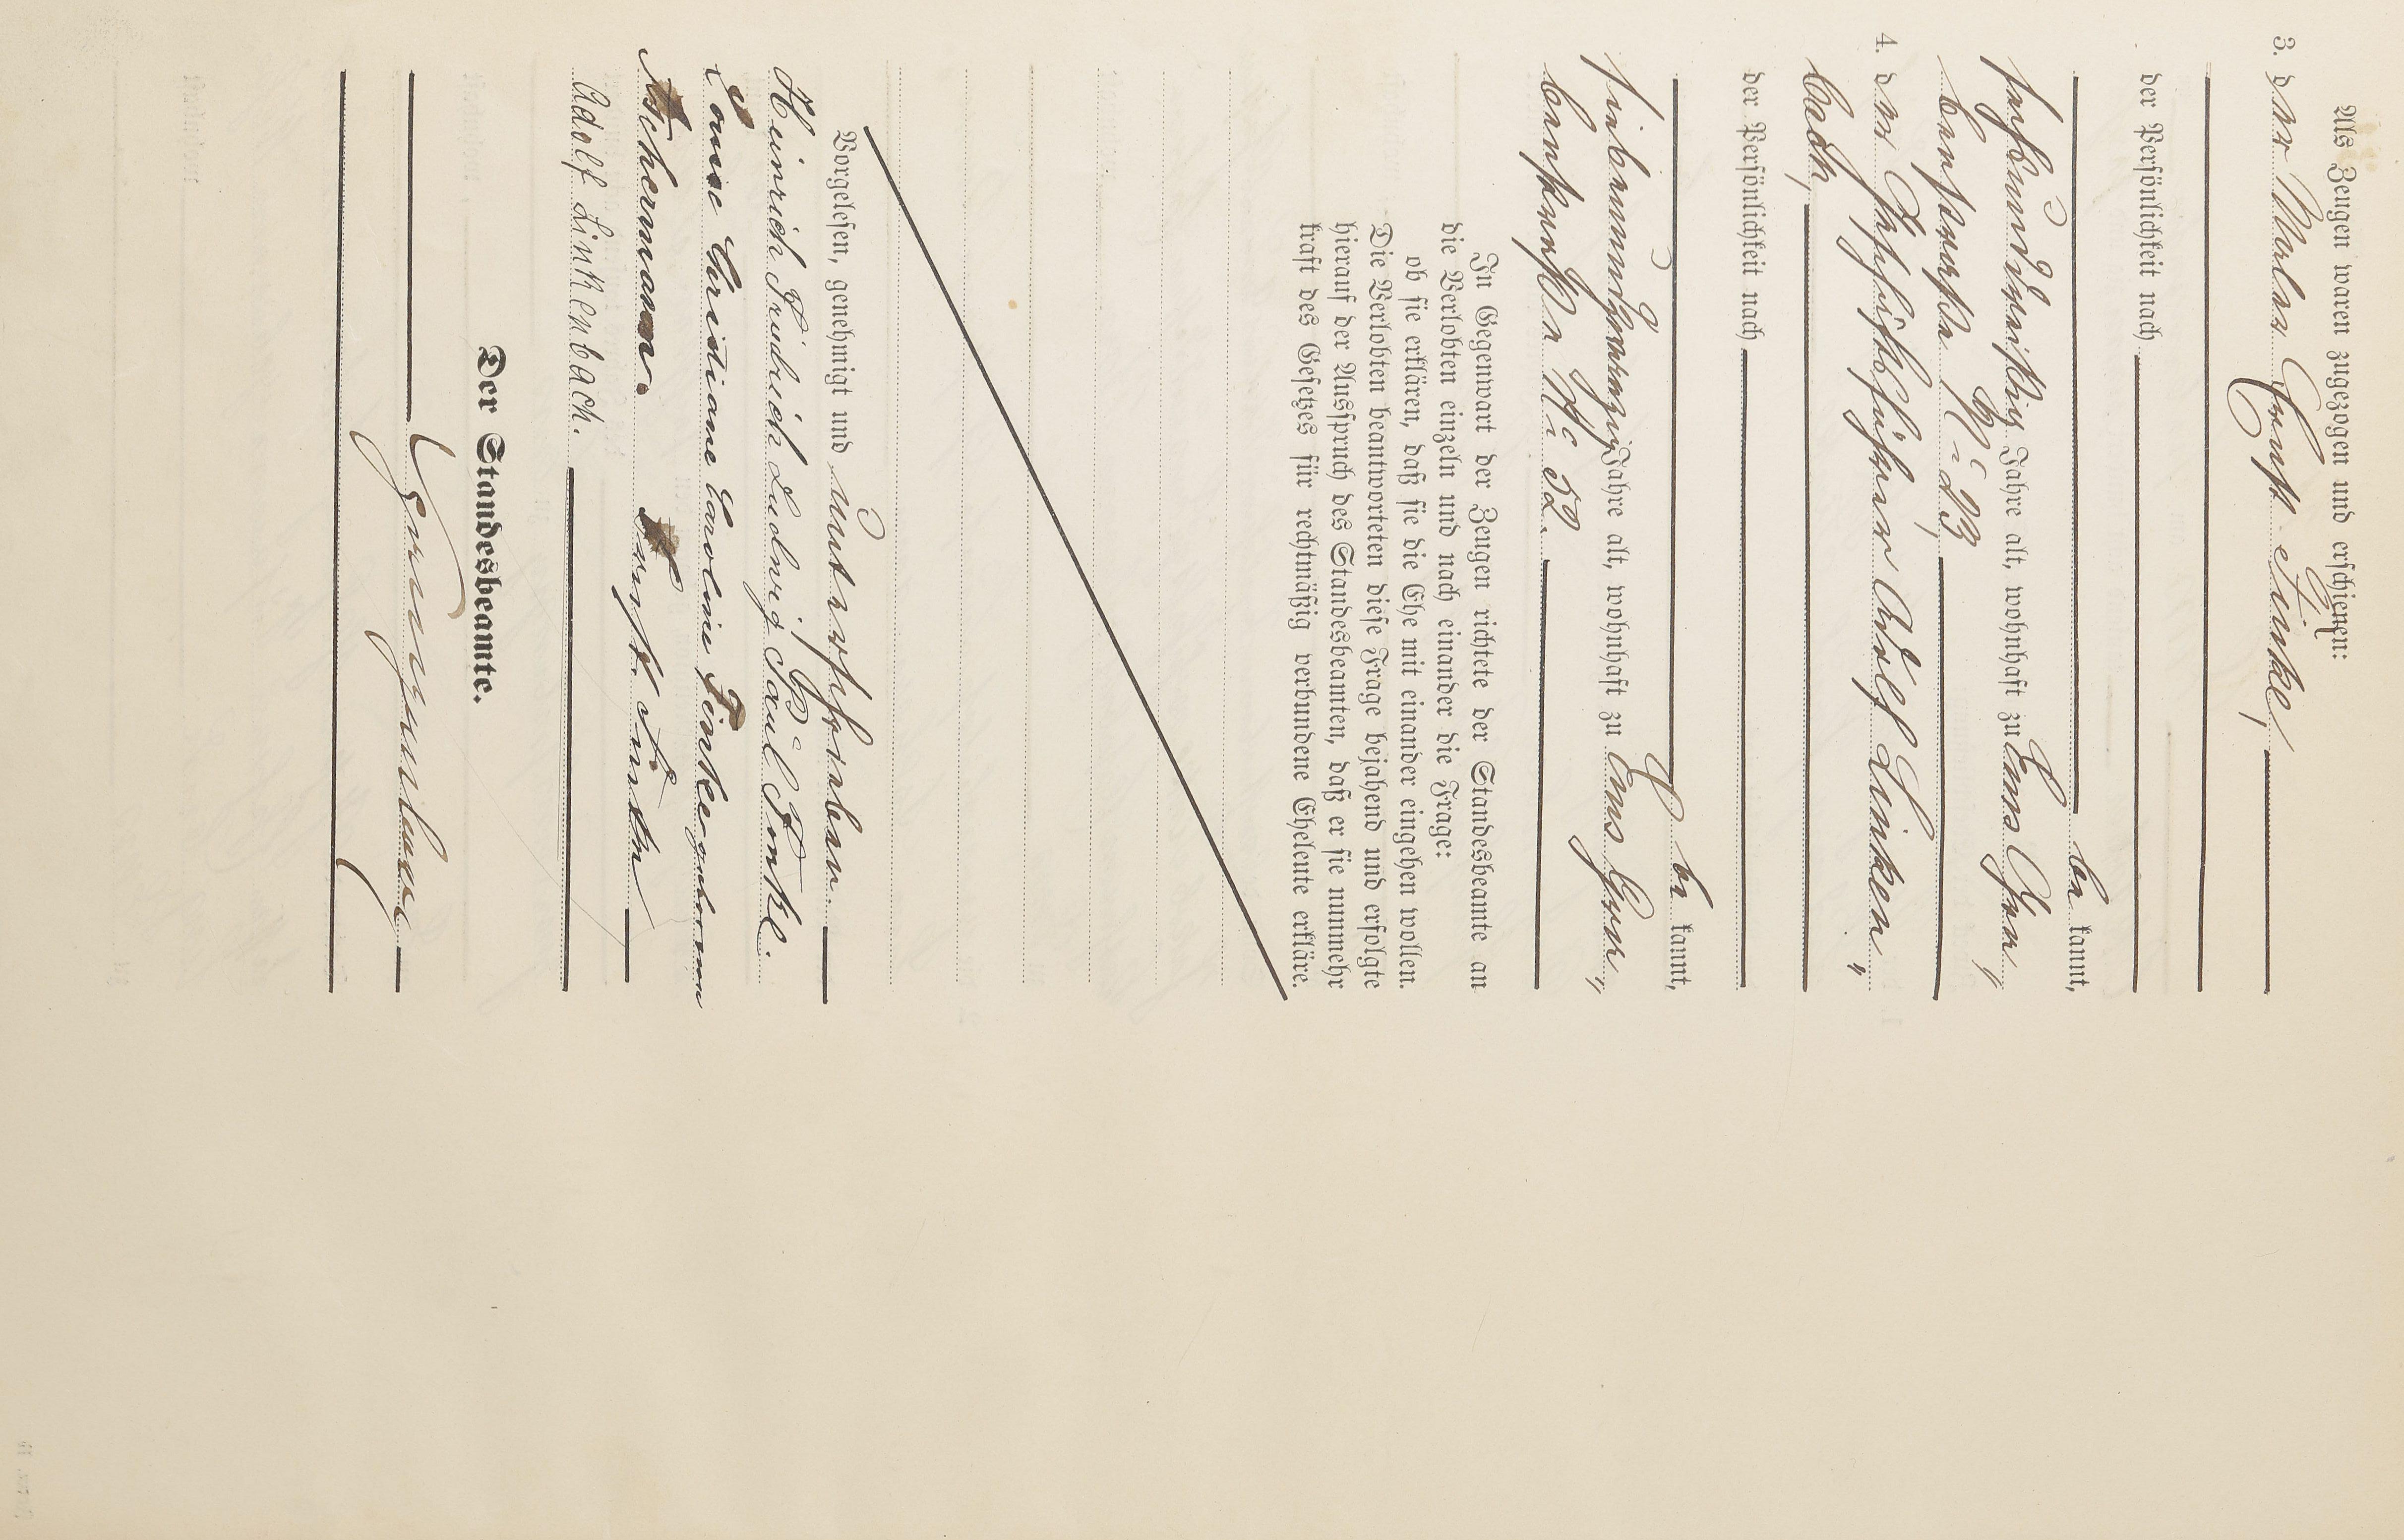 Als Zeugen waren zugezogen und erschienen:
3. der Maler Ernst Finke,
der Persönlichkeit nach
be kannt,
sechsunddreißig Jahre alt, wohnhaft zu Ems Grer,
benstraße № 13,
4. der Geschäftsführer Adolf Linken,,
bach,
der Persönlichkeit nach
be kannt,
siebenundzwanzig Jahre alt, wohnhaft zu Ems
№ 52.
In Gegenwart der Zeugen richtete der Standesbeamte an
die Verlobten einzeln und nach einander die Frage:
ob sie erklären, daß sie die Ehe mit einander eingehen wollen.
Die Verlobten beantworteten diese Frage bejahend und erfolgte
hierauf der Ausspruch des Standesbeamten, daß er sie nunmehr
kraft des Gesetzes für rechtmäßig verbundene Eheleute erkläre.
Vorgelesen, genehmigt und unterschrieben.
Heinrich Friedrich Ludwig Paul Finke.
Louise Christiane Caroline Finke geborene
Aschermann. Ernst Finke
Adolf Linkenbach.
Der Standesbeamte.